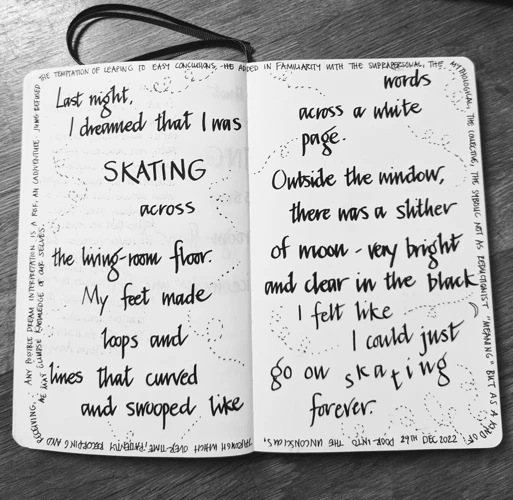 Last night,
I dreamed that I was
SKATING
across
the living-room floor.
My feet made
loops and
lines that curved
and swooped like
words
across a white
page.
Outside the window,
there was a slither
of moon - very bright
and clear in the black
I felt like
I could just
go on skating
forever.
THE TEMPTATION OF LEAPING TO EASY CONCLUSIONS, -HE ADDED IN FAMILIARITY WITH THE SUPRAPERSONAL, THE
MYTHOLOGICAL, THE COLLECTIVE, THE SYMBOLIC NOT AS REDUCTIONIST "MEANING" BUT AS A KIND OF
DOOR INTO THE UNCONSCIOUS, 29TH DEC 2022
THROUGH WHICH OVER-TIME, PATIENTLY RECORDING AND
OBSERVING,
WE MAY GLIMPSE KNOWLEDGE OF OUR SELVES.
ANY POSSIBLE DREAM INTERPRETATION IS A AN ADVENTURE. JUNG REFUSED